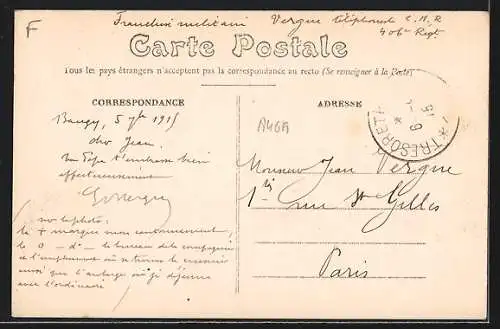 F
Franchise militaire Vergne téléphoniste C.H.R
406e Régt
Carte Postale
Tous les pays étrangers n'acceptent pas la correspondance au recto (Se renseigner à la Poste)
CORRESPONDANCE
ADRESSE
TRESOR ET
A46A
5 7bre 1915
cher Jean
Ton Papa t'embrasse bien
affectueusement
Monsieur Jean Vergne
St Gilles
Paris
sur la photo:
la + marque mon cantonnement,
le o - d° - le bureau de la compagnie
et l'emplacement où se trouve
ainsi que l'auberge où je déjeune
avec l'ordinaire